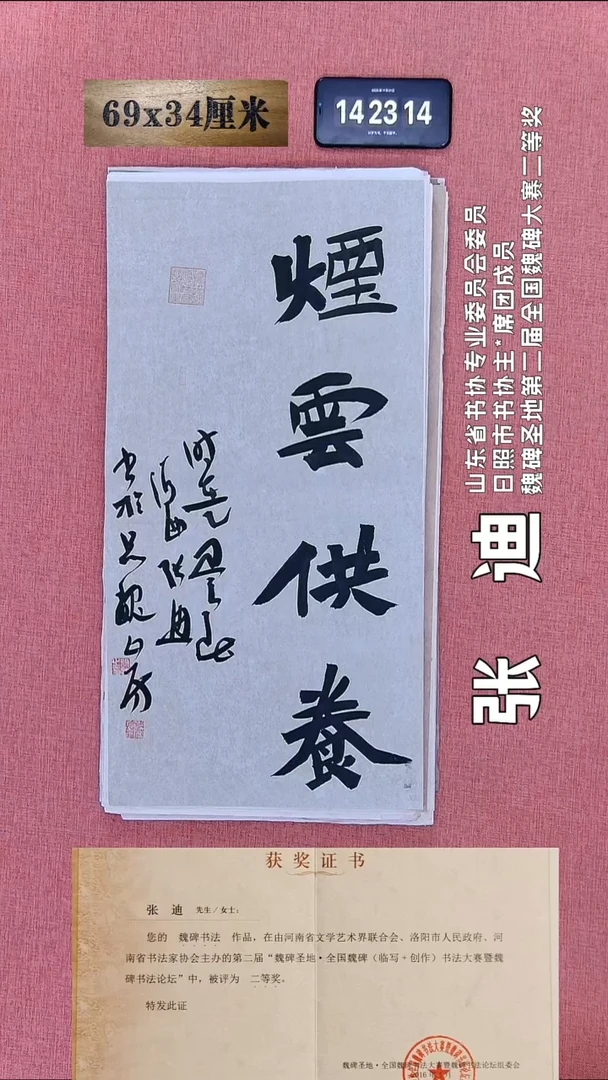 69x34厘米
14 23 14
山东省书协专业委员会委员
日照市书协主*席团成员
魏碑圣地第二届全国魏碑大赛二等奖
张 迪
煙雲供養
时在
张迪
书于
魏
获奖证书
张 迪 先生/女士:
您的 魏碑书法 作品,在由河南省文学艺术界联合会、洛阳市人民政府、河
南省书法家协会主办的第二届“魏碑圣地·全国魏碑(临写+创作)书法大赛暨魏
碑书法论坛”中,被评为 二等奖。
特发此证
魏碑圣地·全国魏碑书法大赛暨魏碑书法论坛组委会